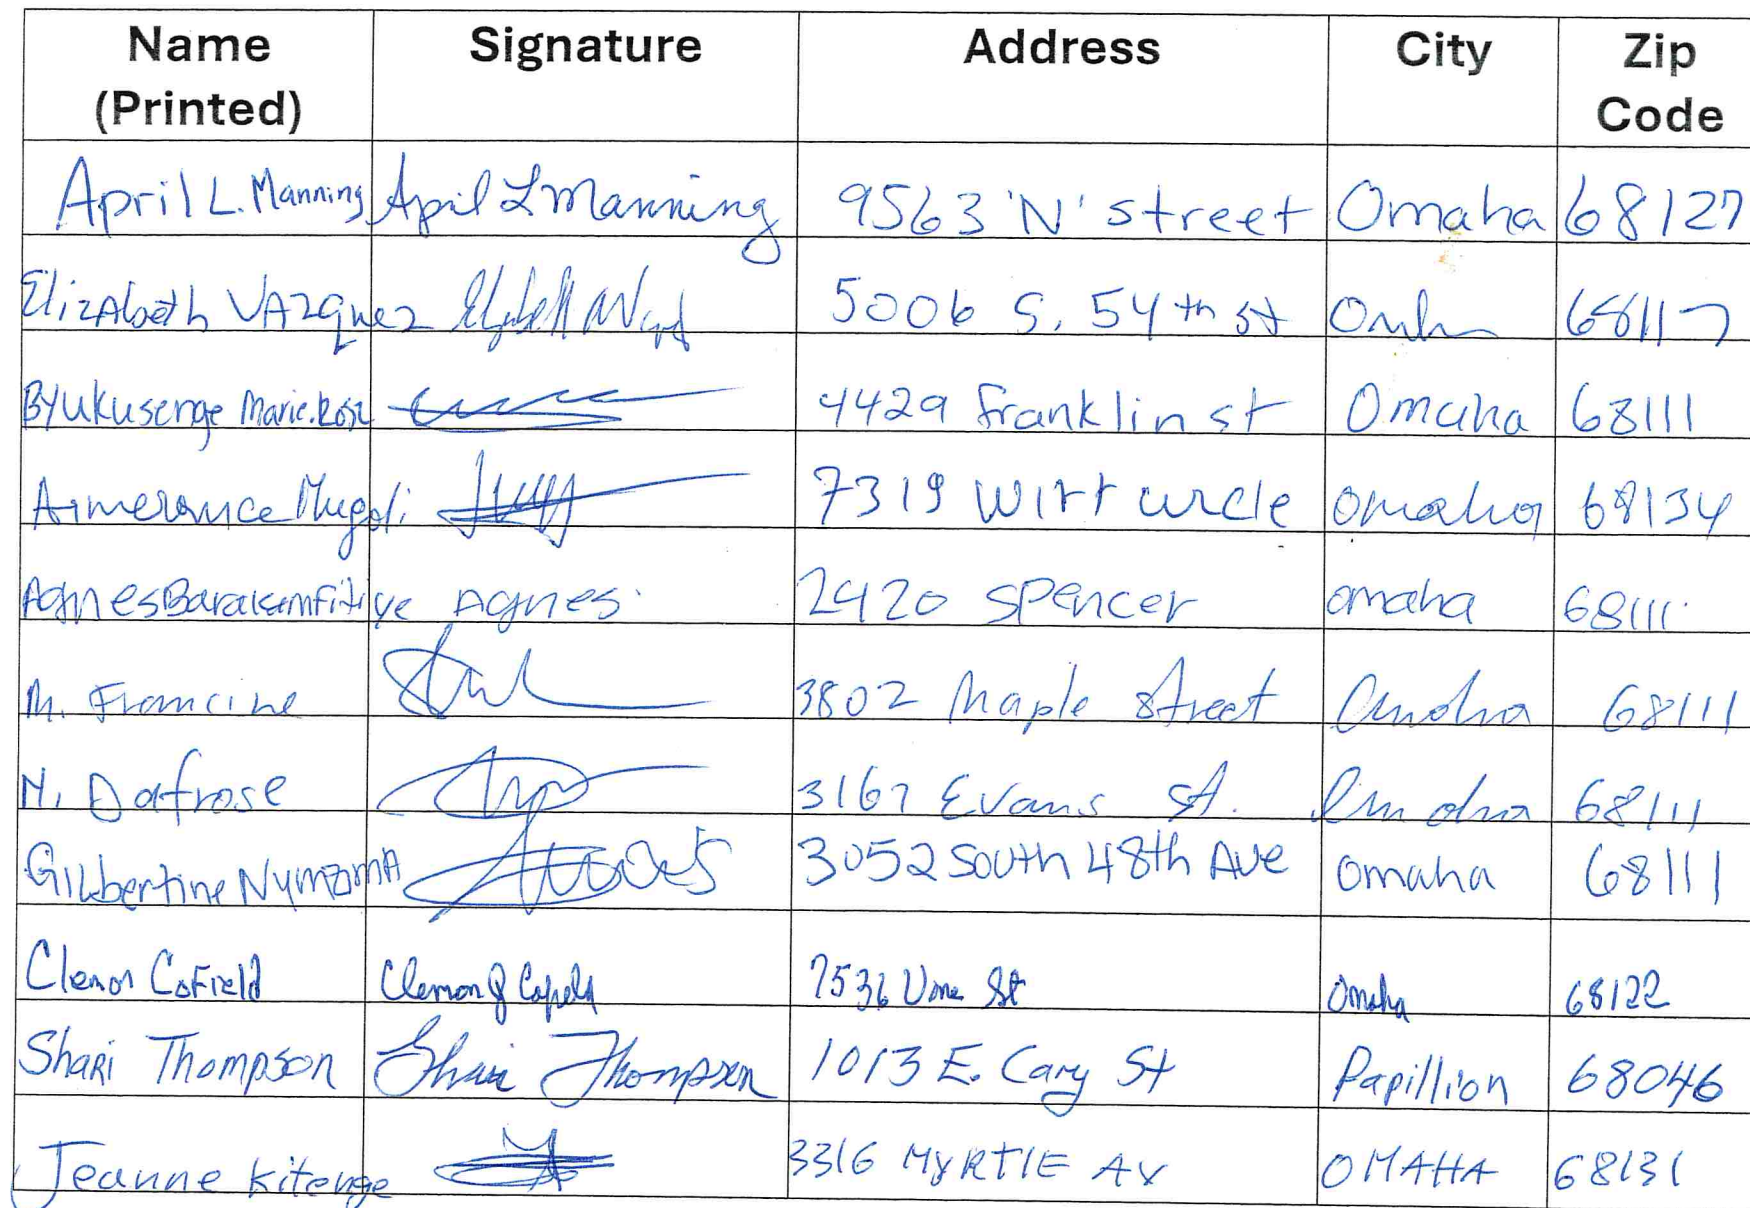 Name (Printed) Signature Address City Zip Code
April L. Manning April L Manning 9563 'N' street Omaha 68127
Elizabeth VAzquez 5006 S. 54th st 68117
Byukusenge Marie.Rose 4429 Franklin st Omaha 68111
7319 Wirt circle omaha 68134
Agnes Agnes. 2420 Spencer omaha 68111
M. Francine 3802 Maple Street Omaha 68111
N. Dafrose 3167 Evans St. Omaha 68111
Gilbertine 3052 South 48th Ave Omaha 68111
Clemon Cofield 7536 Omaha 68122
Shari Thompson Shari Thompson 1013 E. Cary St Papillion 68046
Jeanne Kitenge 3316 MYRTlE Av OMAHA 68131